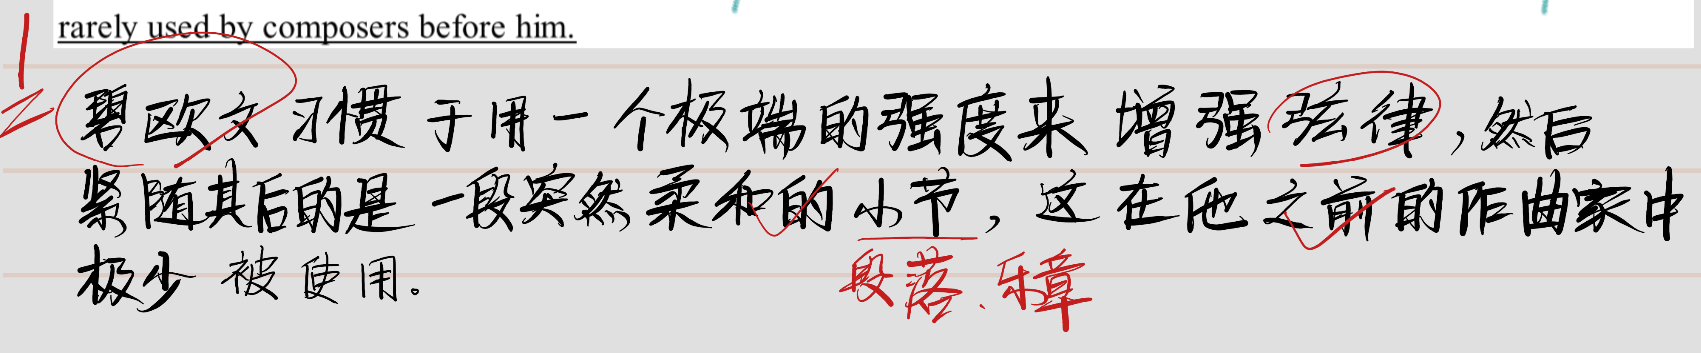 rarely used by composers before him.
碧欧文习惯于用一个极端的强度来增强弦律,然后
紧随其后的是一段突然柔和的小节,这在他之前的作曲家中
极少被使用。
段落、乐章